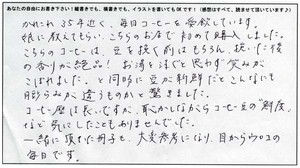 あなたの自由にお書き下さい！縦書きでも、横書きでも、イラストを書いてもOKです！（感想はすべて、読ませて頂いています♪）
かれこれ35年近く、毎日コーヒーを愛飲しています。
紙に教えてもらい、こちらのお店で初めて購入しました。
こちらのコーヒーは、豆を挽く前はもちろん、挽いた後
の香りが絶品！お湯を注ぐと思わず笑みが
こぼれました。と同時に豆が新鮮だとこんなにも
膨らみが違うものかと驚きました。
コーヒー歴は長いですが、恥かしながらコーヒー豆の"鮮度"
など気にしたこともありませんでした。
一緒に頂いた冊子も、大変参考になり、目からウロコの
毎日です。